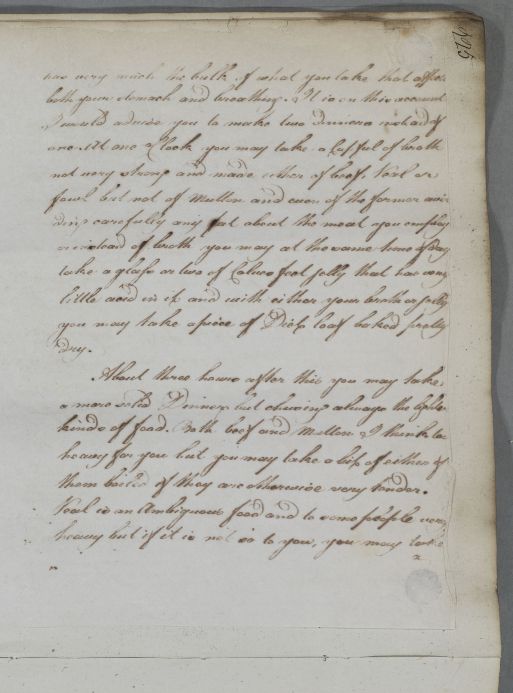 925
very much the bulk of what you take that affects
both your stomach and breathing. It is on this account
I would advise you to make two Dinners instead of
one. At one o'Clock you may take a Cupful of broth
not very strong and made either of beef, Veal or
fowl but not of Mutton and even of the former avoi-
ding carefully any fat about the meat you employ
or instead of broth you may at the same time of day
take a glass or two of Calves feet Jelly that has very
little acid in it and with either your broth or Jelly
you may take a piece of Diet loaf baked pretty
dry.
About three hours after this you may take
a more solid Dinner but chusing always the lighter
kinds of food. Both beef and Mutton I think too
heavy for you but you may take a bit of either of
them boiled if they are otherwise very tender.
Veal is an Ambiguous food and to some people very
heavy but if it is not so to you, you may take